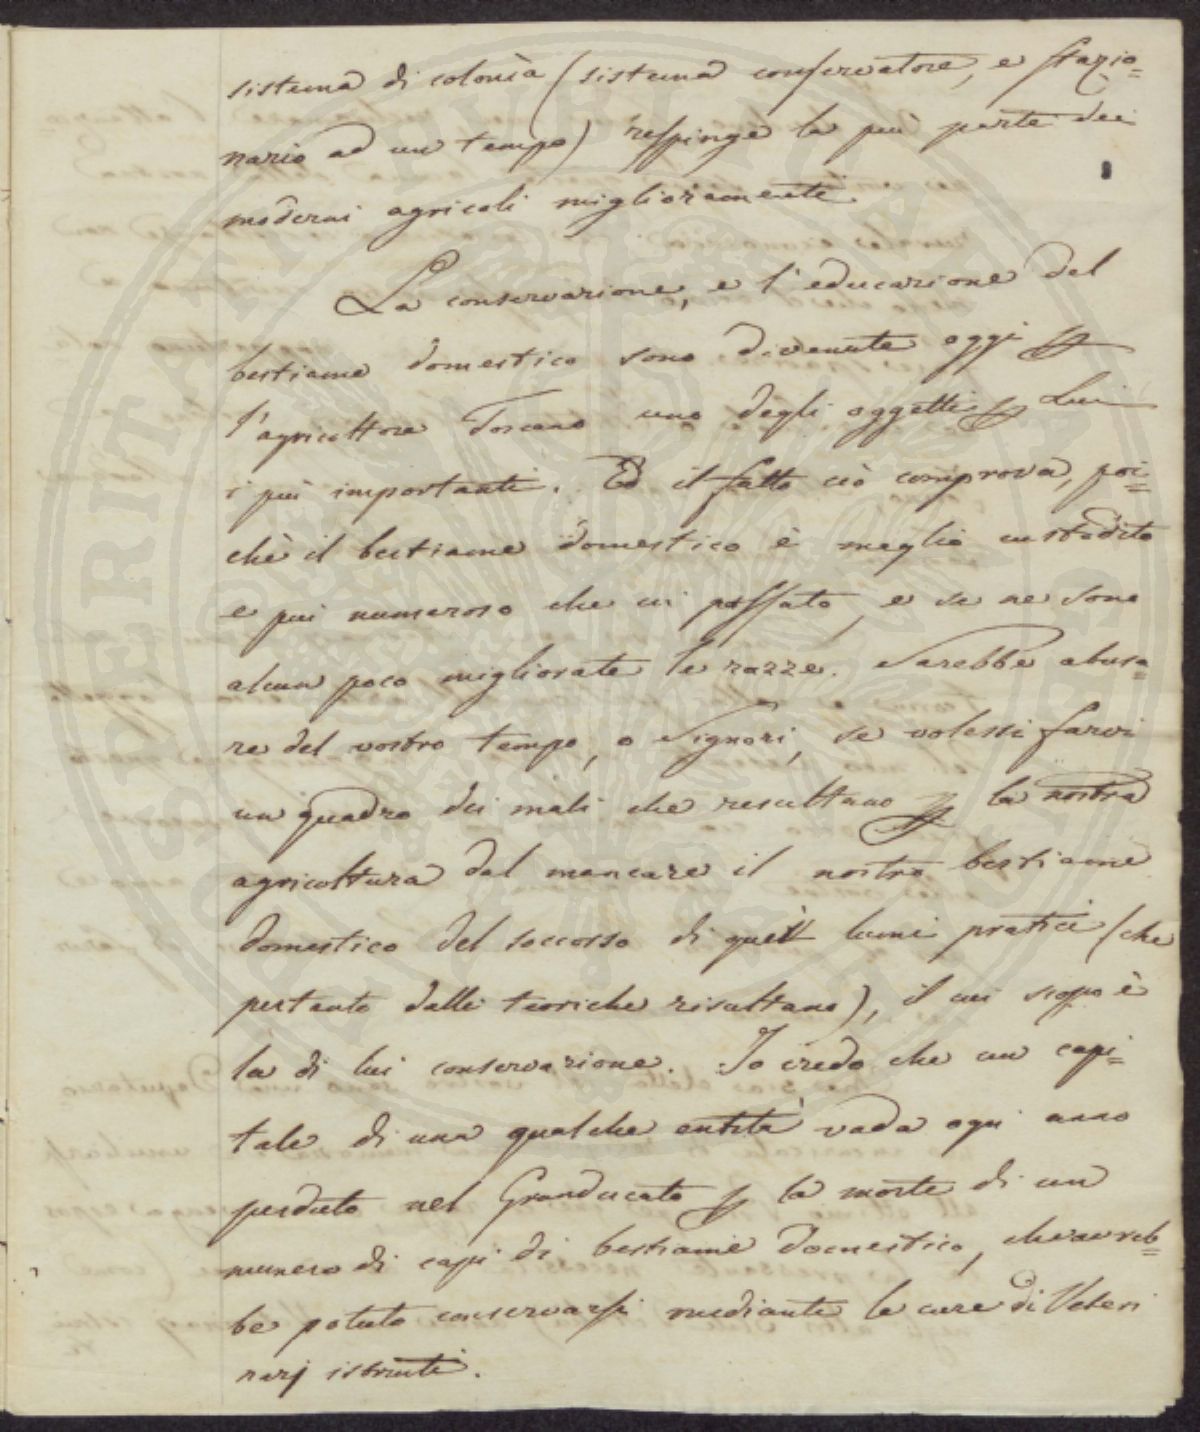 sistema di colonìa (sistema conservatore, e stazio=
nario ad un tempo) respinge la più parte dei
moderni agricoli miglioramenti.
La conservazione, e l'educazione del
bestiame domestico sono divenute oggi p
l'agricoltore Toscano uno degli oggetti p Lui
i più importanti. Ed il fatto ciò comprova, poi=
chè il bestiame domestico è meglio custodito
e più numeroso che in passato, e se ne sono
alcun poco migliorate le razze. Sarebbe abusa=
re del vostro tempo, o Signori, se volessi farvi
un quadro dei mali che resultano p la nostra
agricoltura dal mancare il nostro bestiame
domestico del soccorso di quei lumi pratici (che
pertanto dalle teoriche risultano), il cui scopo è
la di lui conservazione. Io credo che un capi=
tale di una qualche entità vada ogni anno
perduto nel Granducato p la morte di un
numero di capi di bestiame domestico, che avreb=
be potuto conservarsi mediante le cure di Veteri
narj istruiti.